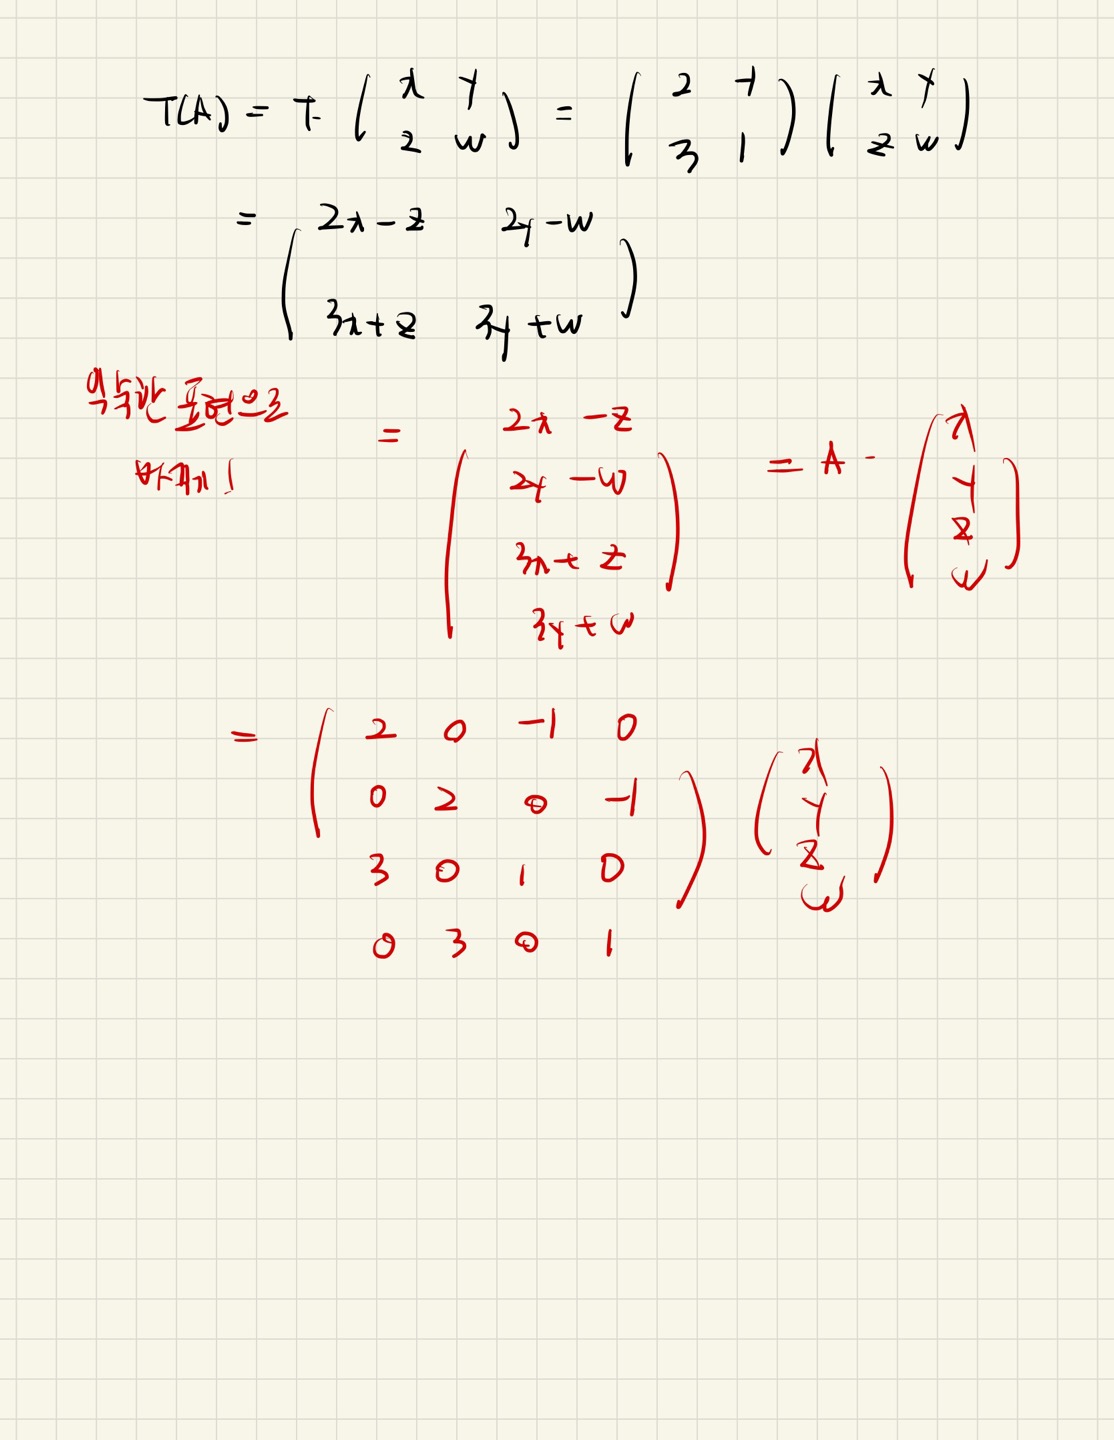 T(A) = T· ( x y = ( 2 -1 ) ( x y
z w ) 3 1 z w )
= ( 2x - z 2y - w
3x + z 3y + w )
익숙한 표현으로
바꾸기!
= ( 2x - z
2y - w
3x + z
3y + w )
= A · ( x
y
z
w )
= ( 2 0 -1 0
0 2 0 -1
3 0 1 0
0 3 0 1 )
( x
y
z
w )